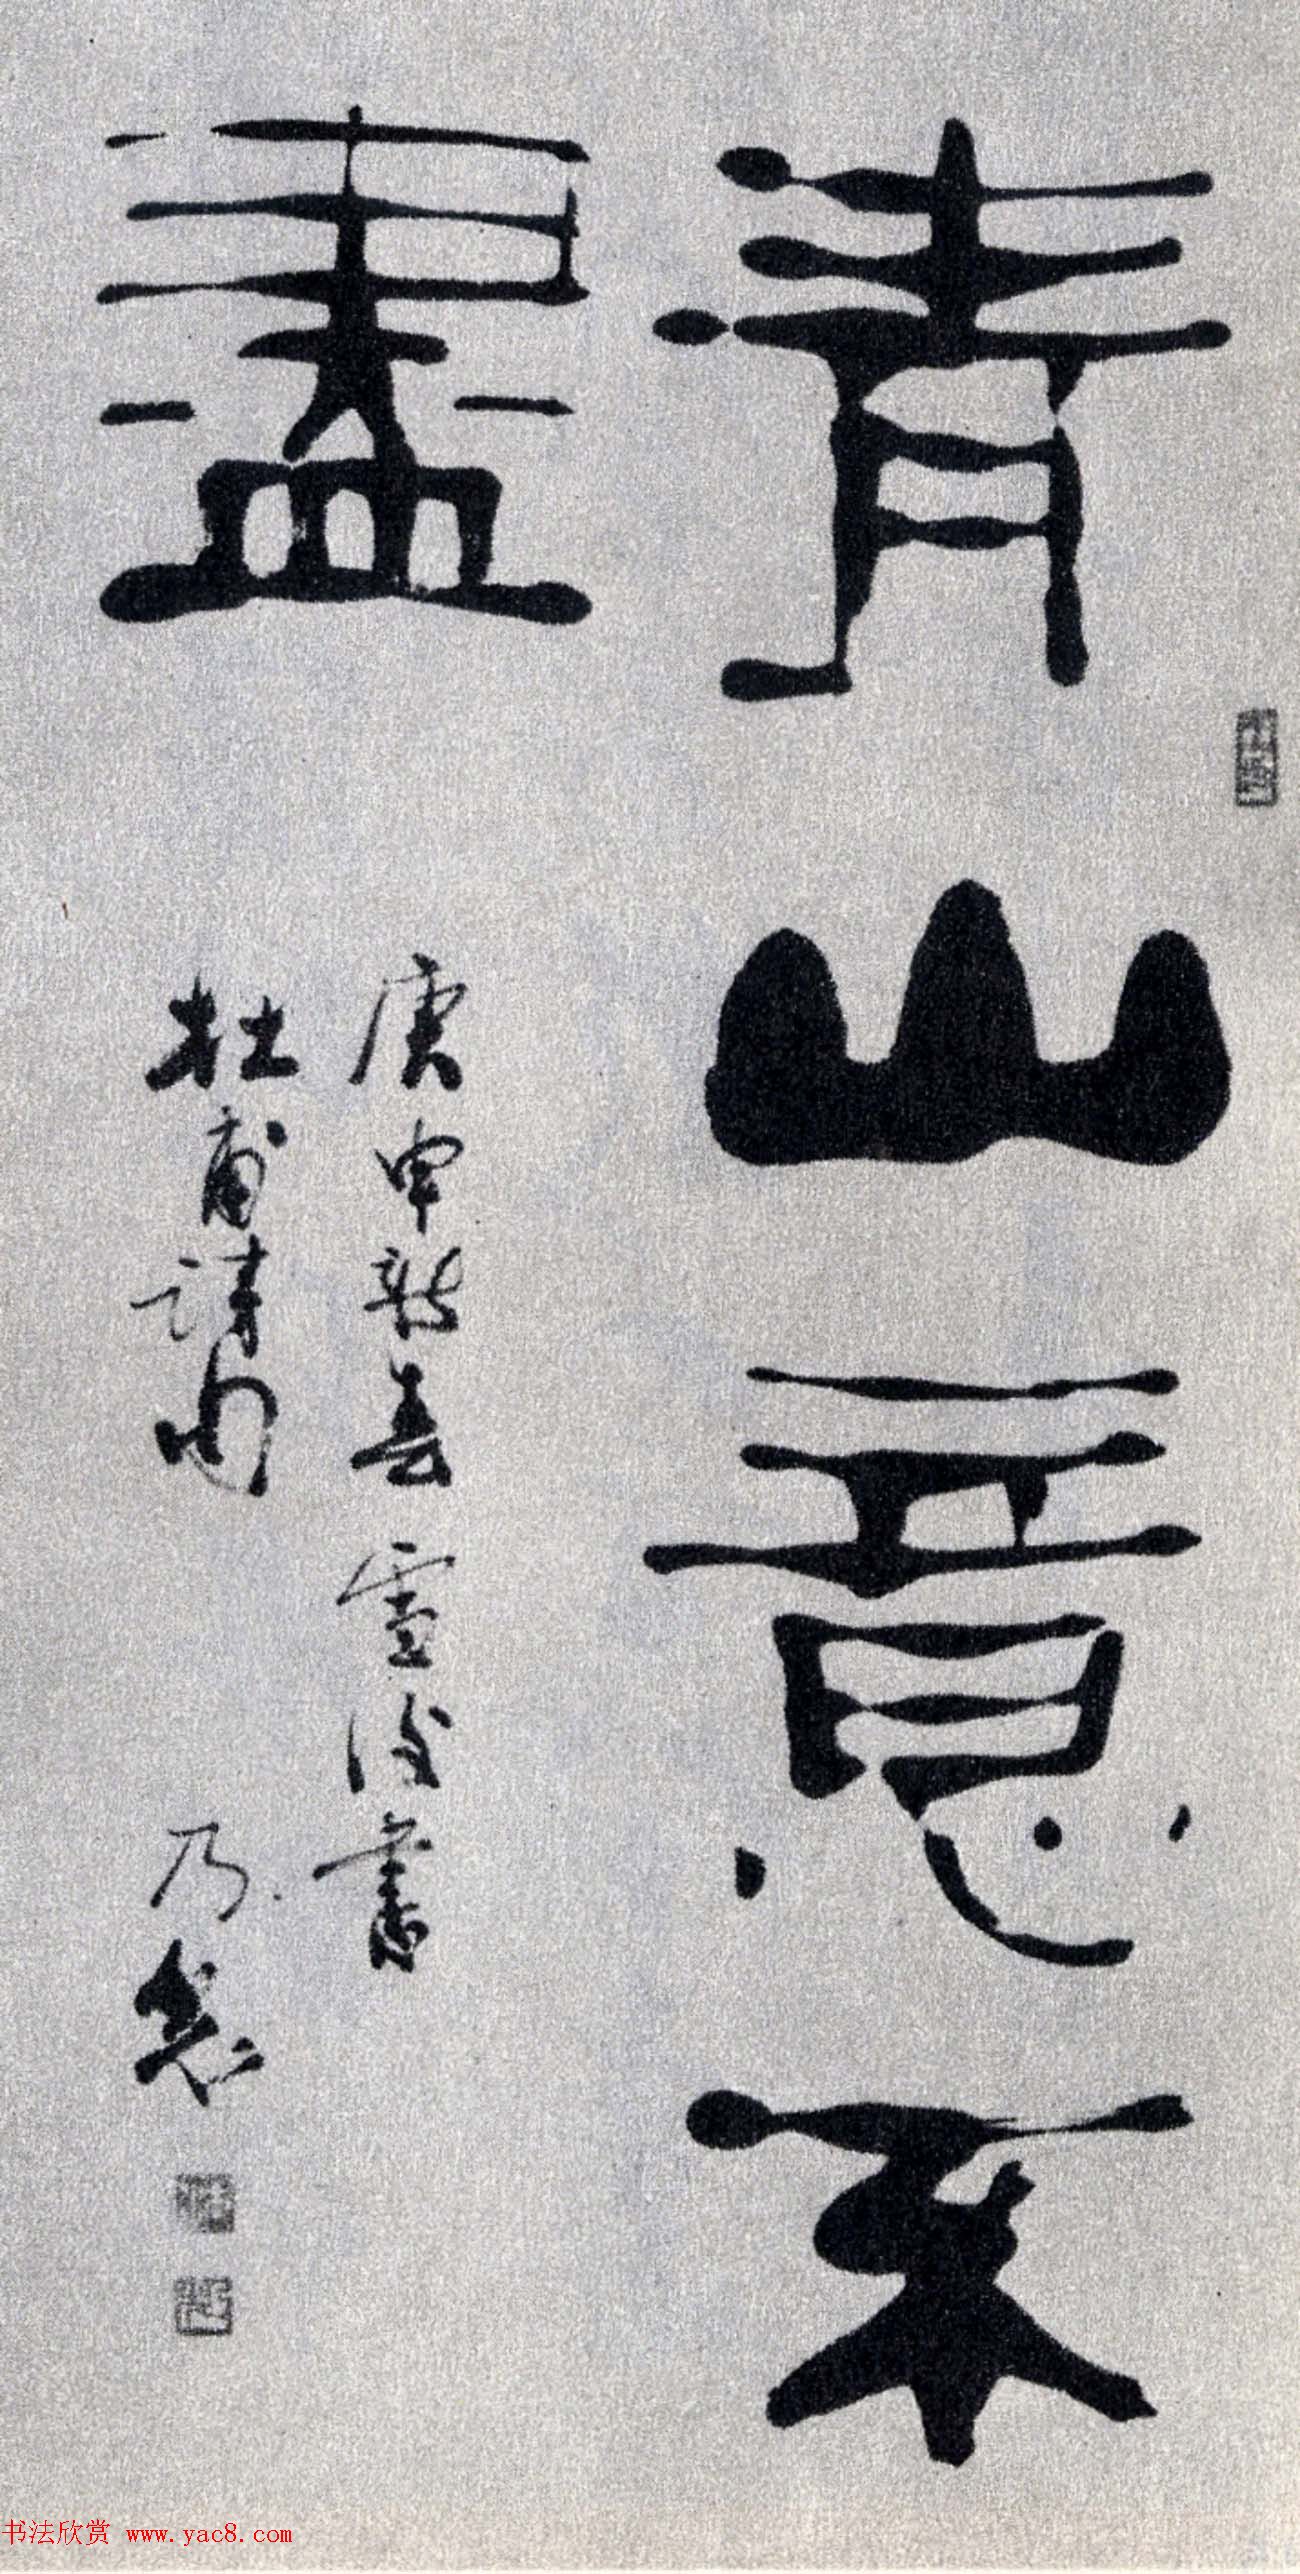 青山意不
盡
庚申新春雪後書
杜甫詩句
乃
书法欣赏 www.yac8.com